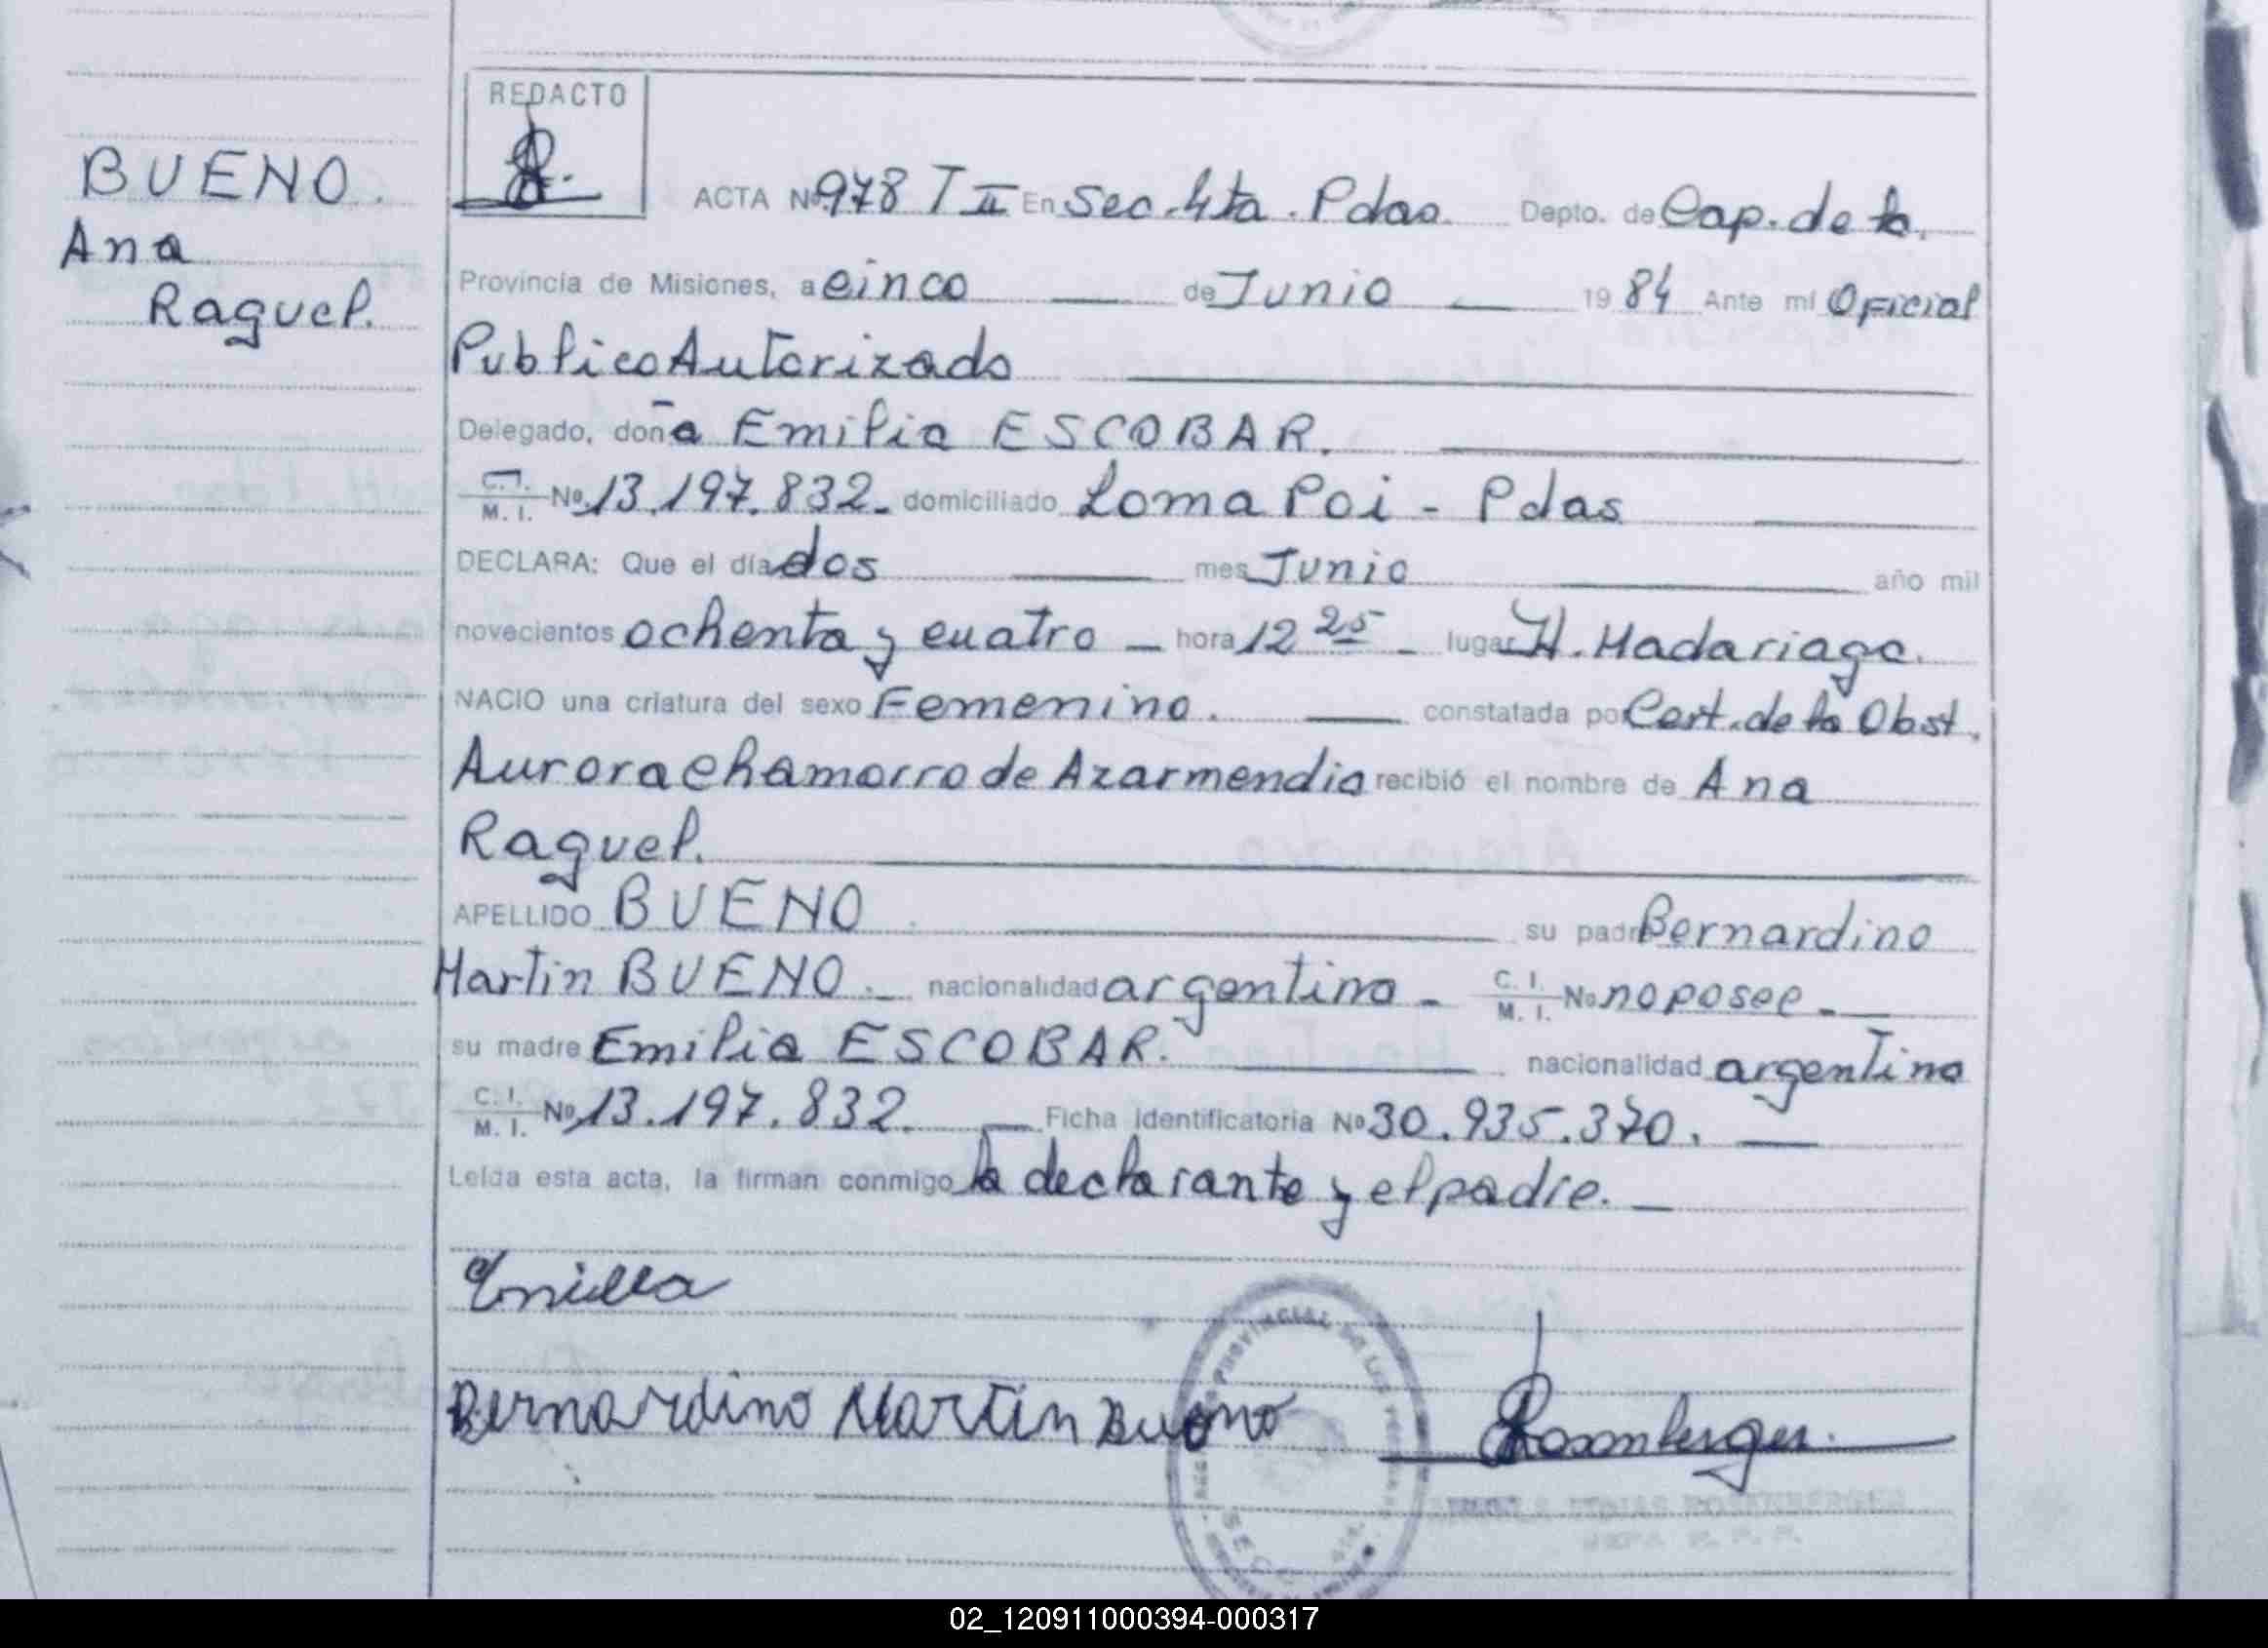 BUENO.
Ana
Raquel.
REDACTO
ACTA Nº 978 T II En Sec. 4ta. Pdas. Depto. de Cap. de la.
Provincia de Misiones, a cinco de Junio 19 84 Ante mí Oficial
Publico Autorizado
Delegado, doña Emilia ESCOBAR.
C. I. M. I. Nº 13.197.832. domiciliado Loma Poi - Pdas
DECLARA: Que el día dos mes Junio año mil
novecientos ochenta y cuatro - hora 12 25 - lugar H. Madariaga.
NACIO una criatura del sexo Femenino. constatada por Cert. de la Obst.
Aurora Chamorro de Azarmendia recibió el nombre de Ana
Raquel.
APELLIDO BUENO su padre Bernardino
Martin BUENO. nacionalidad argentina - C. I. M. I. Nº no posee -
su madre Emilia ESCOBAR. nacionalidad argentina
C. I. M. I. Nº 13.197.832. Ficha identificatoria Nº 30.935.370.
Leída esta acta, la firman conmigo la declarante y el padre.
Emilia
Bernardino Martin Bueno Rosenberger.
PROVINCIAL DE LAS
ROSENBERGER
02_120911000394-000317